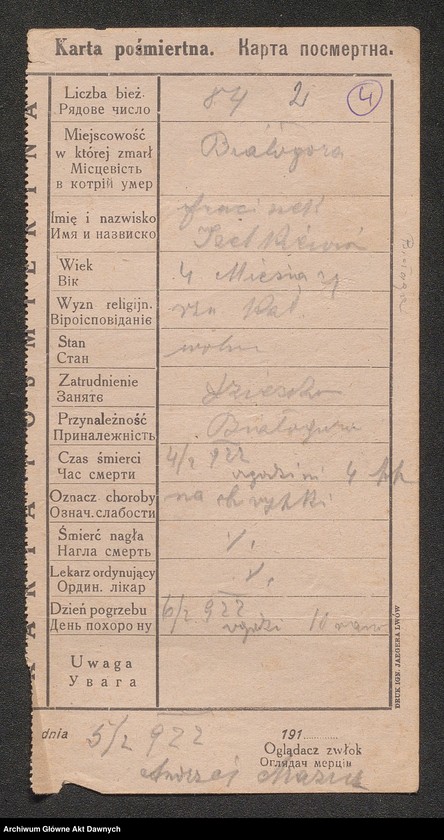 Karta pośmiertna. Карта посмертна.
KARTA POŚMIERTNA
Liczba bież.
Рядове число
84 2 4
Miejscowość
w której zmarł
Місцевість
в котрій умер
Białogóra
Imię i nazwisko
Имя и назвиско
Wiek
Вік
4 Miesiący
Wyzn religijn.
Віроісповіданіє
rzm Kat.
Stan
Стан
wolny
Zatrudnienie
Занятє
dziecko
Przynależność
Приналежність
Białogóra
Czas śmierci
Час смерти
4/2 922
o godzini 4 pp
Oznacz choroby
Означ.слабости
na
Śmierć nagła
Нагла смерть
Lekarz ordynujący
Ордин. лікар
Dzień pogrzebu
День похорону
6/2 922
10 rano
Uwaga
Увага
DRUK IGN. JAEGERA LWÓW
dnia 5/2 922 191
Oglądacz zwłok
Оглядач мерців
Andrzej
Archiwum Główne Akt Dawnych